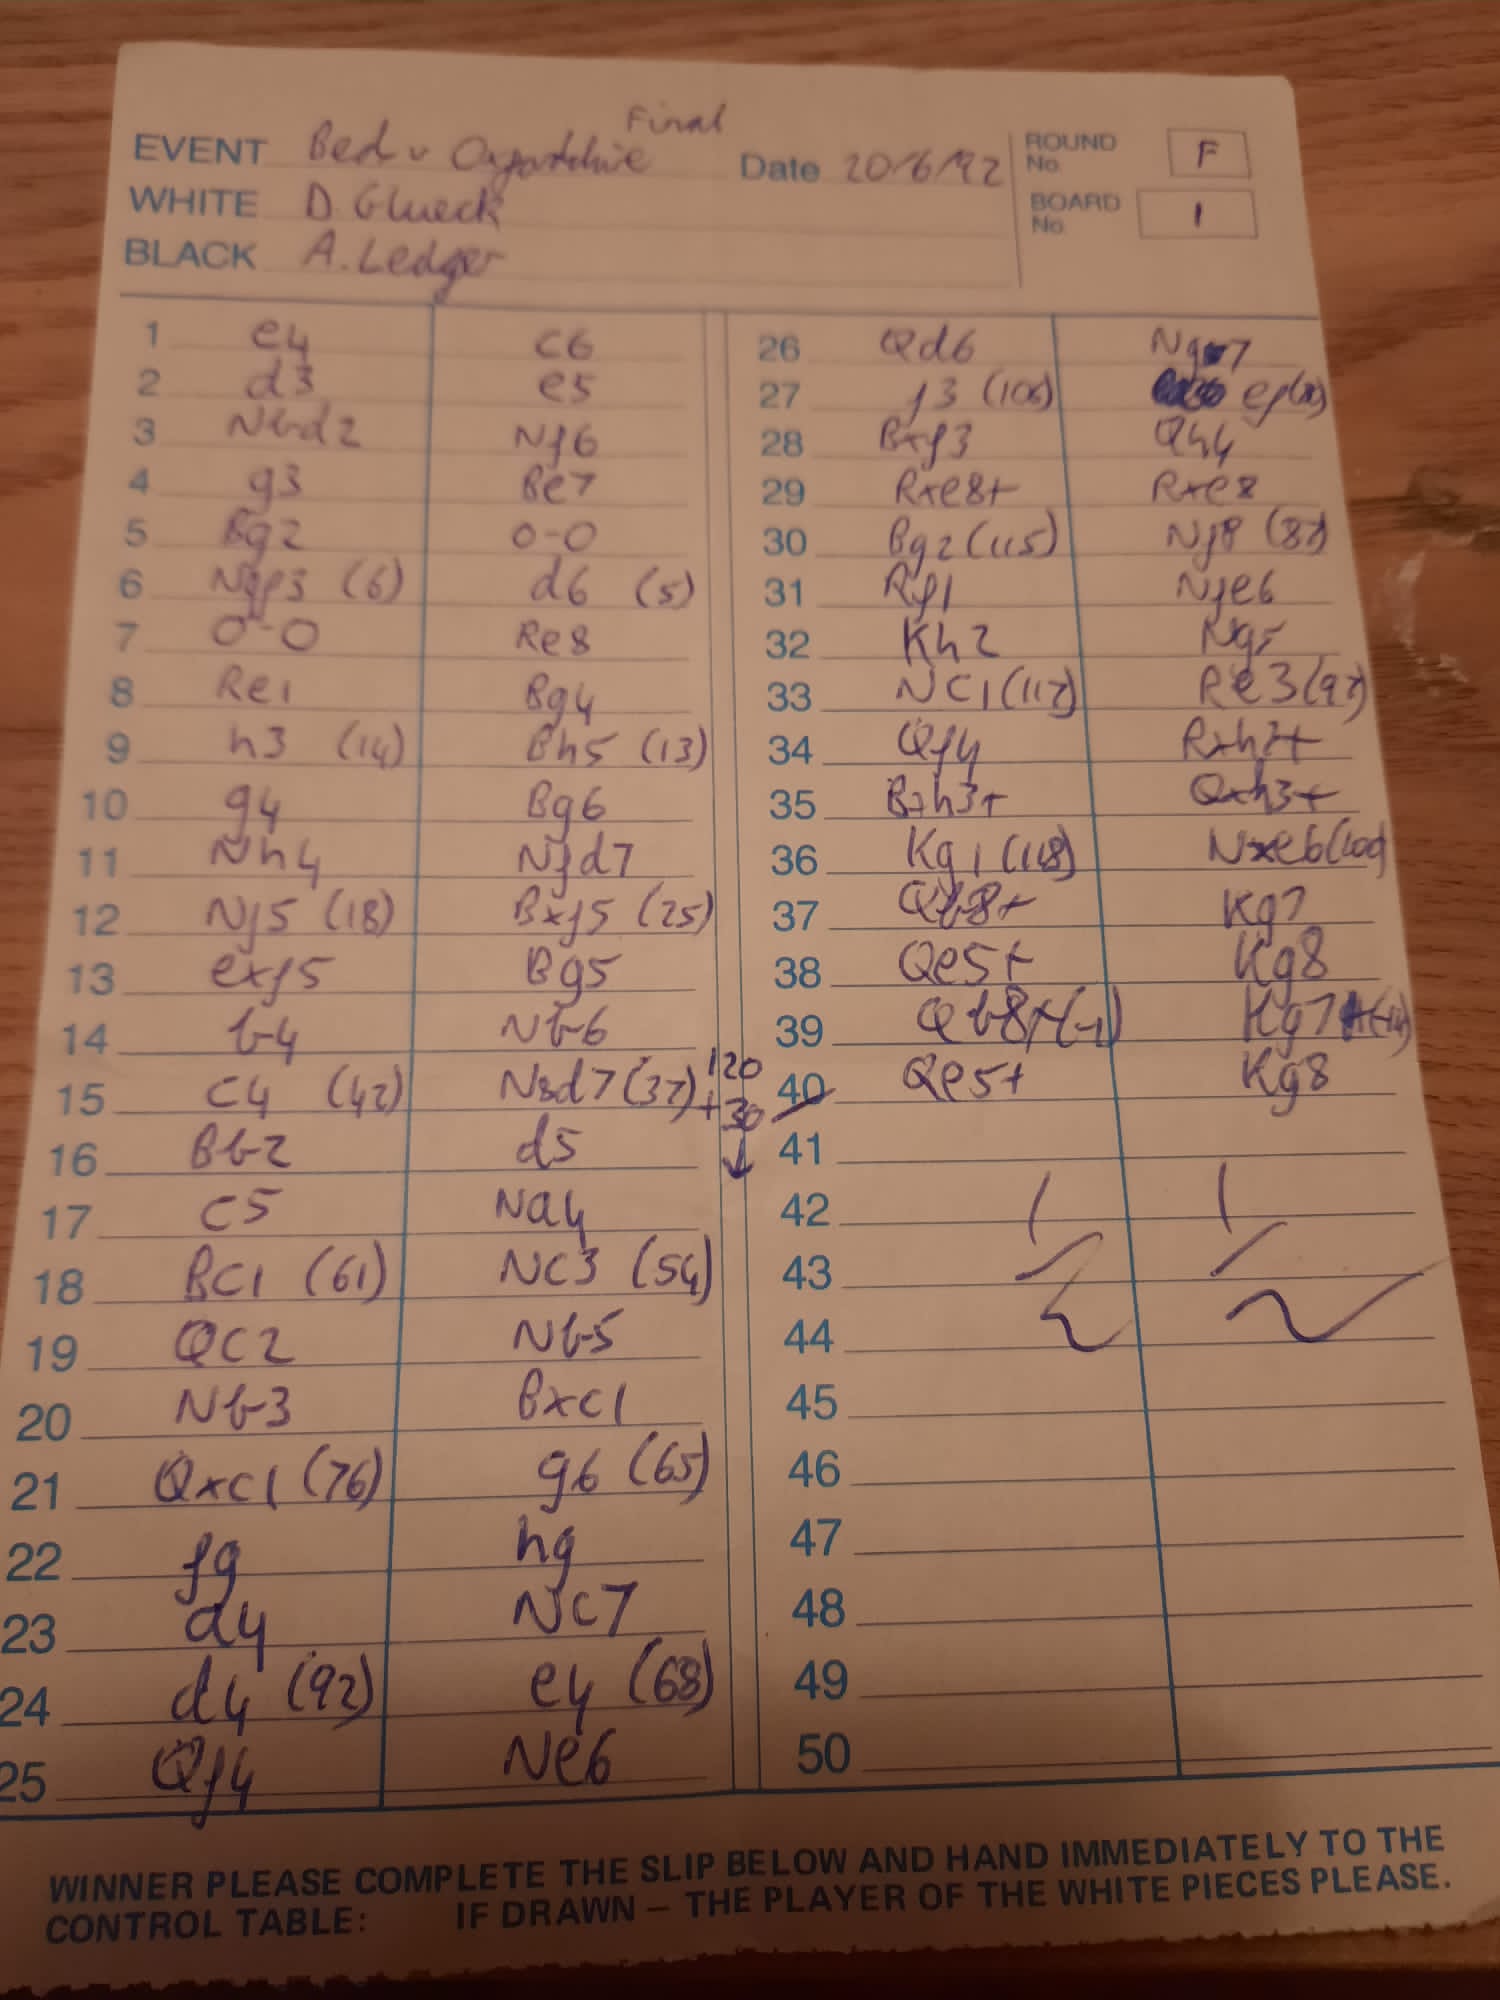 Final
EVENT Bed v Oxfordshire Date 20/6/92 ROUND No. F
WHITE D. Glueck BOARD No. 1
BLACK A. Ledger
1 e4 c6
2 d3 e5
3 Nbd2 Nf6
4 g3 Be7
5 Bg2 0-0
6 Ngf3 (6) d6 (5)
7 0-0 Re8
8 Re1 Bg4
9 h3 (14) Bh5 (13)
10 g4 Bg6
11 Nh4 Nfd7
12 Nf5 (18) Bxf5 (25)
13 exf5 Bg5
14 b4 Nb6
15 c4 (42) N8d7 (37)
16 Bb2 d5
17 c5 Na4
18 Bc1 (61) Nc3 (54)
19 Qc2 Nb5
20 Nb3 Bxc1
21 Qxc1 (76) g6 (65)
22 fg hg
23 a4 Nc7
24 d4 (92) e4 (68)
25 Qf4 Ne6
120
+30
26 Qd6 Ng7
27 f3 (106) ef
28 Bxf3 Qh4
29 Rxe8+ Rxe8
30 Bg2 (115) Nf8
31 Rf1 Nfe6
32 Kh2 Ng5
33 Nc1 (117) Re3 (97)
34 Qf4 Rxh3+
35 Bxh3+ Qxh3+
36 Kg1 (118) Nxe6 (100)
37 Qb8+ Kg7
38 Qe5+ Kg8
39 Qb8+ Kg7
40 Qe5+ Kg8
41
42
43 1/2 1/2
44
45
46
47
48
49
50
WINNER PLEASE COMPLETE THE SLIP BELOW AND HAND IMMEDIATELY TO THE
CONTROL TABLE: IF DRAWN – THE PLAYER OF THE WHITE PIECES PLEASE.